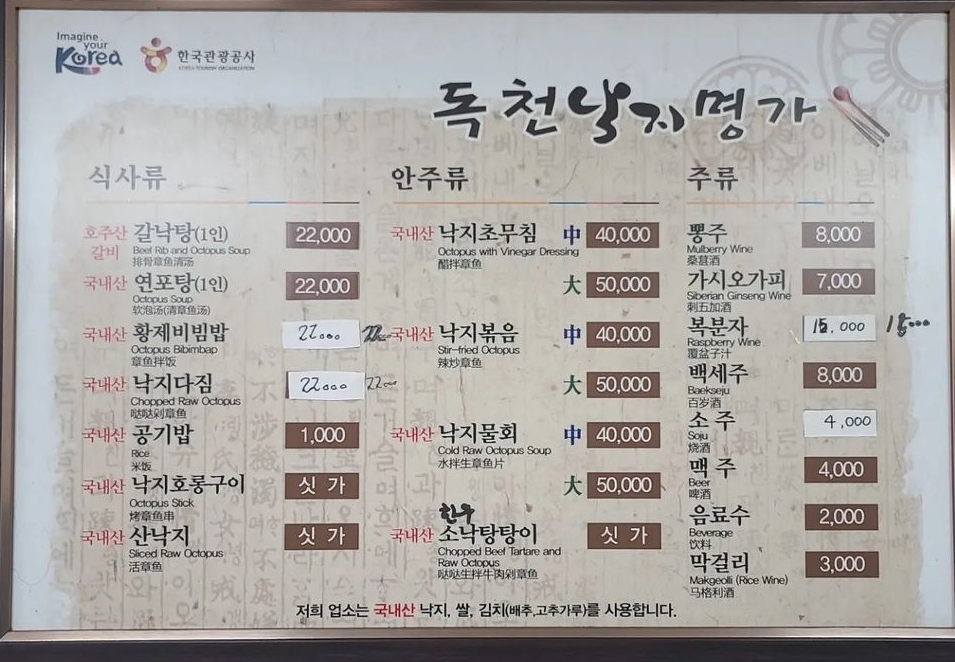 Imagine your Korea
한국관광공사
KOREA TOURISM ORGANIZATION
독천낙지명가
식사류
호주산 갈비 갈낙탕(1인) 22,000
Beef Rib and Octopus Soup
排骨章鱼清汤
국내산 연포탕(1인) 22,000
Octopus Soup
软泡汤(清章鱼汤)
국내산 황제비빔밥 22000
Octopus Bibimbap
章鱼拌饭
국내산 낙지다짐 22000
Chopped Raw Octopus
哒哒剁章鱼
국내산 공기밥 1,000
Rice
米饭
국내산 낙지호롱구이 싯 가
Octopus Stick
烤章鱼串
국내산 산낙지 싯 가
Sliced Raw Octopus
活章鱼
안주류
국내산 낙지초무침 中 40,000
Octopus with Vinegar Dressing
醋拌章鱼
大 50,000
국내산 낙지볶음 中 40,000
Stir-fried Octopus
辣炒章鱼
大 50,000
국내산 낙지물회 中 40,000
Cold Raw Octopus Soup
水拌生章鱼片
大 50,000
한우
국내산 소낙탕탕이 싯 가
Chopped Beef Tartare and
Raw Octopus
哒哒生拌牛肉剁章鱼
주류
뽕주 8,000
Mulberry Wine
桑葚酒
가시오가피 7,000
Siberian Ginseng Wine
刺五加酒
복분자 15.000
Raspberry Wine
覆盆子汁
백세주 8,000
Baekseju
百岁酒
소 주 4,000
Soju
烧酒
맥 주 4,000
Beer
啤酒
음료수 2,000
Beverage
饮料
막걸리 3,000
Makgeolli (Rice Wine)
马格利酒
저희 업소는 국내산 낙지, 쌀, 김치(배추,고추가루)를 사용합니다.